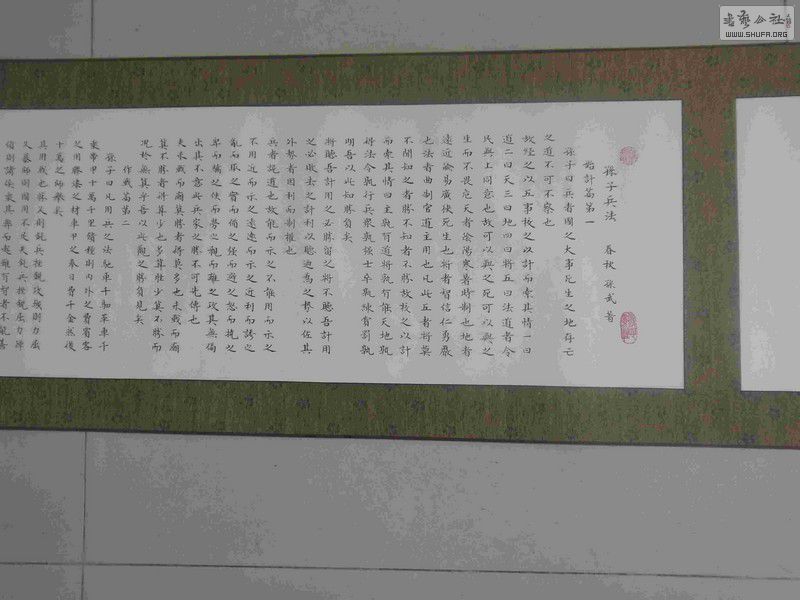 書藝公社
WWW.SHUFA.ORG
孫子兵法 春秋 孫武著
始計篇第一
孫子曰兵者國之大事死生之地存亡
之道不可不察也
故經之以五事校之以計而索其情一曰
道二曰天三曰地四曰將五曰法道者令
民與上同意也故可以與之死可以與之
生而不畏危天者陰陽寒暑時制也地者
遠近險易廣狹死生也將者智信仁勇嚴
也法者曲制官道主用也凡此五者將莫
不聞知之者勝不知者不勝故校之以計
而索其情曰主孰有道將孰有能天地孰
得法令孰行兵衆孰強士卒孰練賞罰孰
明吾以此知勝負矣
將聽吾計用之必勝留之將不聽吾計用
之必敗去之計利以聽迺為之勢以佐其
外勢者因利而制權也
兵者詭道也故能而示之不能用而示之
不用近而示之遠遠而示之近利而誘之
亂而取之實而備之強而避之怒而撓之
卑而驕之佚而勞之親而離之攻其無備
出其不意此兵家之勝不可先傳也
夫未戰而廟算勝者得算多也未戰而廟
算不勝者得算少也多算勝少算不勝而
況於無算乎吾以此觀之勝負見矣
作戰篇第二
孫子曰凡用兵之法馳車千駟革車千
乘帶甲十萬千里饋糧則內外之費賓客
之用膠漆之材車甲之奉日費千金然後
十萬之師舉矣
其用戰也勝久則鈍兵挫銳攻城則力屈
久暴師則國用不足夫鈍兵挫銳屈力殫
貨則諸侯乘其弊而起雖有智者不能善